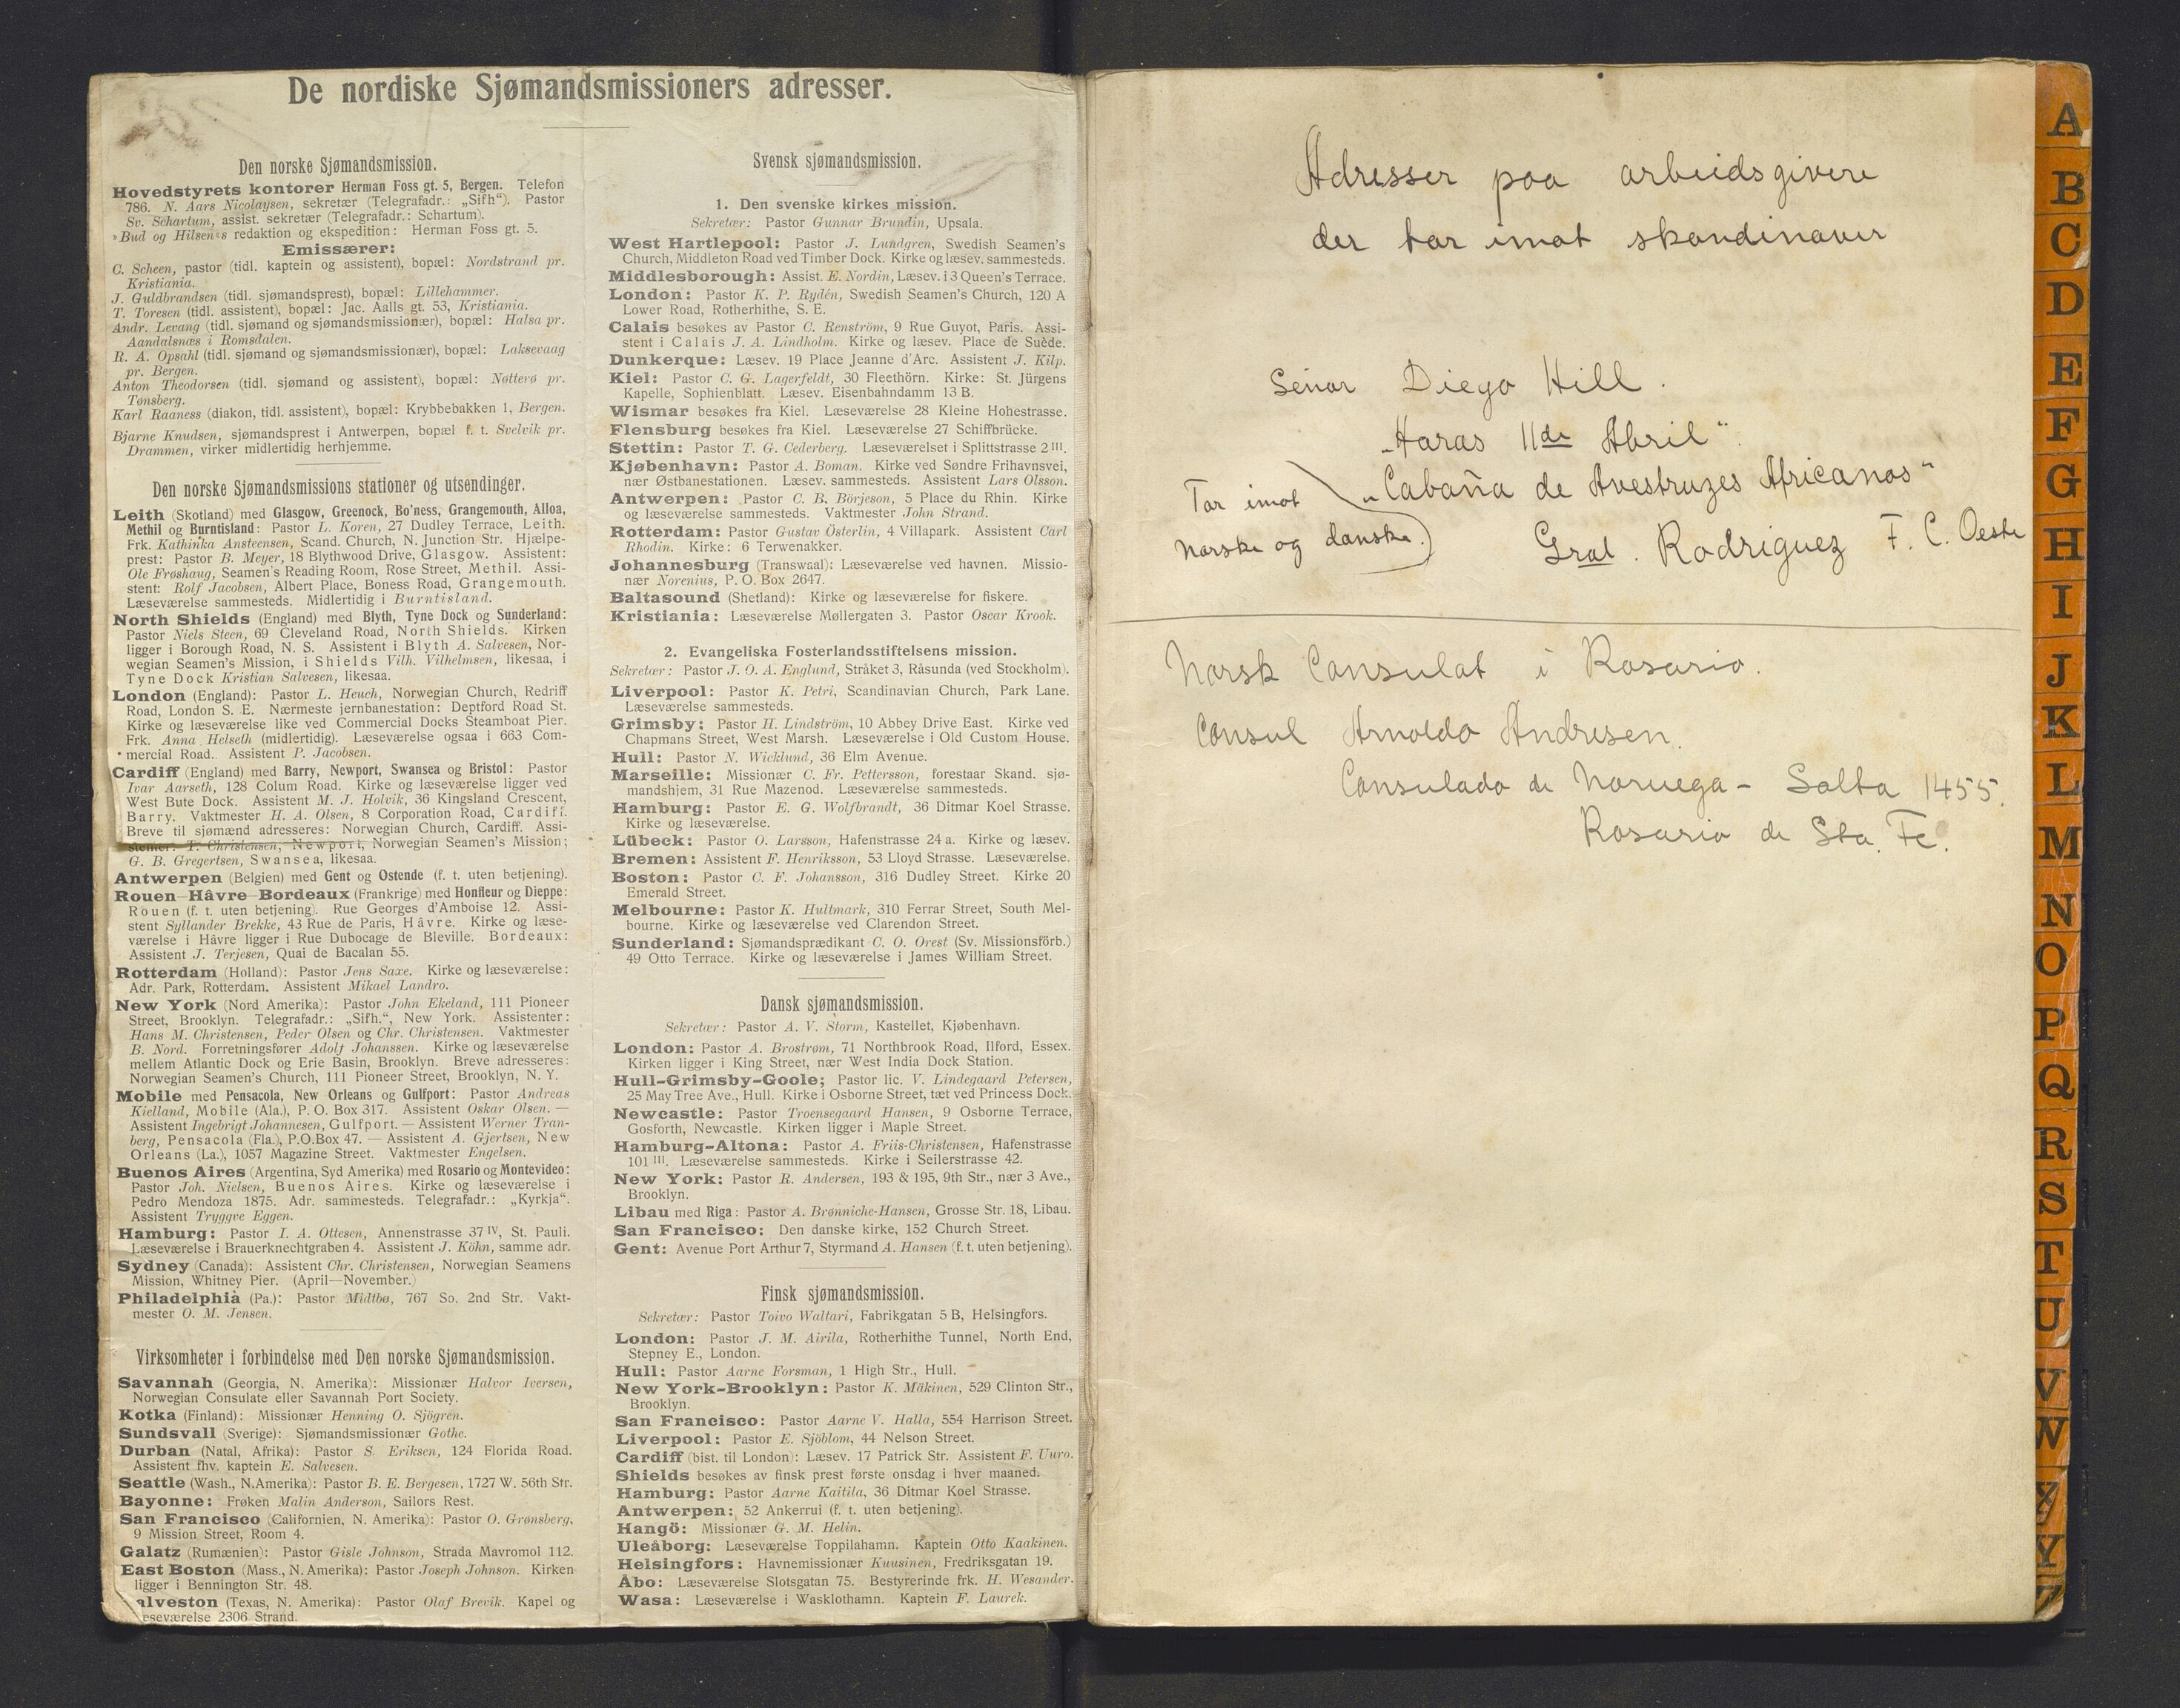 De nordiske Sjømandsmissioners adresser.
Den norske Sjømandsmission.
Hovedstyrets kontorer Herman Foss gt. 5, Bergen. Telefon
786. N. Aars Nicolaysen, sekretær (Telegrafadr.: „Sifh“). Pastor
Sv. Schartum, assist. sekretær (Telegrafadr.: Schartum).
»Bud og Hilsen«s redaktion og ekspedition: Herman Foss gt. 5.
Emissærer:
C. Scheen, pastor (tidl. kaptein og assistent), bopæl: Nordstrand pr.
Kristiania.
J. Guldbrandsen (tidl. sjømandsprest), bopæl: Lillehammer.
T. Toresen (tidl. assistent), bopæl: Jac. Aalls gt. 53, Kristiania.
Andr. Levang (tidl. sjømand og sjømandsmissionær), bopæl: Halsa pr.
Aandalsnæs i Romsdalen.
R. A. Opsahl (tidl. sjømand og sjømandsmissionær), bopæl: Laksevaag
pr. Bergen.
Anton Theodorsen (tidl. sjømand og assistent), bopæl: Nøtterø pr.
Tønsberg.
Karl Raaness (diakon, tidl. assistent), bopæl: Krybbebakken 1, Bergen.
Bjarne Knudsen, sjømandsprest i Antwerpen, bopæl f. t. Svelvik pr.
Drammen, virker midlertidig herhjemme.
Den norske Sjømandsmissions stationer og utsendinger.
Leith (Skotland) med Glasgow, Greenock, Bo'ness, Grangemouth, Alloa,
Methil og Burntisland: Pastor L. Koren, 27 Dudley Terrace, Leith.
Frk. Kathinka Ansteensen, Scand. Church, N. Junction Str. Hjælpe-
prest: Pastor B. Meyer, 18 Blythwood Drive, Glasgow. Assistent:
Ole Frøshaug, Seamen's Reading Room, Rose Street, Methil. Assi-
stent: Rolf Jacobsen, Albert Place, Boness Road, Grangemouth.
Læseværelse sammesteds. Midlertidig i Burntisland.
North Shields (England) med Blyth, Tyne Dock og Sunderland:
Pastor Niels Steen, 69 Cleveland Road, North Shields. Kirken
ligger i Borough Road, N. S. Assistent i Blyth A. Salvesen, Nor-
wegian Seamen's Mission, i Shields Vilh. Vilhelmsen, likesaa, i
Tyne Dock Kristian Salvesen, likesaa.
London (England): Pastor L. Heuch, Norwegian Church, Redriff
Road, London S. E. Nærmeste jernbanestation: Deptford Road St.
Kirke og læseværelse like ved Commercial Docks Steamboat Pier.
Frk. Anna Helseth (midlertidig). Læseværelse ogsaa i 663 Com-
mercial Road. Assistent P. Jacobsen.
Cardiff (England) med Barry, Newport, Swansea og Bristol: Pastor
Ivar Aarseth, 128 Colum Road. Kirke og læseværelse ligger ved
West Bute Dock. Assistent M. J. Holvik, 36 Kingsland Crescent,
Barry. Vaktmester H. A. Olsen, 8 Corporation Road, Cardiff.
Breve til sjømænd adresseres: Norwegian Church, Cardiff. Assi-
stenter: T. Christensen, Newport, Norwegian Seamen's Mission;
G. B. Gregertsen, Swansea, likesaa.
Antwerpen (Belgien) med Gent og Ostende (f. t. uten betjening).
Rouen–Hâvre–Bordeaux (Frankrige) med Honfleur og Dieppe:
Rouen (f. t. uten betjening). Rue Georges d'Amboise 12. Assi-
stent Syllander Brekke, 43 Rue de Paris, Hâvre. Kirke og læse-
værelse i Hâvre ligger i Rue Dubocage de Bleville. Bordeaux:
Assistent J. Terjesen, Quai de Bacalan 55.
Rotterdam (Holland): Pastor Jens Saxe. Kirke og læseværelse:
Adr. Park, Rotterdam. Assistent Mikael Landro.
New York (Nord Amerika): Pastor John Ekeland, 111 Pioneer
Street, Brooklyn. Telegrafadr.: „Sifh.“, New York. Assistenter:
Hans M. Christensen, Peder Olsen og Chr. Christensen. Vaktmester
B. Nord. Forretningsfører Adolf Johanssen. Kirke og læseværelse
mellem Atlantic Dock og Erie Basin, Brooklyn. Breve adresseres:
Norwegian Seamen's Church, 111 Pioneer Street, Brooklyn, N. Y.
Mobile med Pensacola, New Orleans og Gulfport: Pastor Andreas
Kielland, Mobile (Ala.), P. O. Box 317. Assistent Oskar Olsen. —
Assistent Ingebrigt Johannesen, Gulfport. — Assistent Werner Tran-
berg, Pensacola (Fla.), P.O.Box 47. — Assistent A. Gjertsen, New
Orleans (La.), 1057 Magazine Street. Vaktmester Engelsen.
Buenos Aires (Argentina, Syd Amerika) med Rosario og Montevideo:
Pastor Joh. Nielsen, Buenos Aires. Kirke og læseværelse i
Pedro Mendoza 1875. Adr. sammesteds. Telegrafadr.: „Kyrkja“.
Assistent Tryggve Eggen.
Hamburg: Pastor I. A. Ottesen, Annenstrasse 37 IV, St. Pauli.
Læseværelse i Brauerknechtgraben 4. Assistent J. Köhn, samme adr.
Sydney (Canada): Assistent Chr. Christensen, Norwegian Seamens
Mission, Whitney Pier. (April—November.)
Philadelphia (Pa.): Pastor Midtbø, 767 So. 2nd Str. Vakt-
mester O. M. Jensen.
Virksomheter i forbindelse med Den norske Sjømandsmission.
Savannah (Georgia, N. Amerika): Missionær Halvor Iversen,
Norwegian Consulate eller Savannah Port Society.
Kotka (Finland): Missionær Henning O. Sjögren.
Sundsvall (Sverige): Sjømandsmissionær Gothe.
Durban (Natal, Afrika): Pastor S. Eriksen, 124 Florida Road.
Assistent fhv. kaptein E. Salvesen.
Seattle (Wash., N.Amerika): Pastor B. E. Bergesen, 1727 W. 56th Str.
Bayonne: Frøken Malin Anderson, Sailors Rest.
San Francisco (Californien, N. Amerika): Pastor O. Grønsberg,
9 Mission Street, Room 4.
Galatz (Rumænien): Pastor Gisle Johnson, Strada Mavromol 112.
East Boston (Mass., N. Amerika): Pastor Joseph Johnson. Kirken
ligger i Bennington Str. 48.
alveston (Texas, N. Amerika): Pastor Olaf Brevik. Kapel og
æseværelse 2306 Strand.
Svensk sjømandsmission.
1. Den svenske kirkes mission.
Sekretær: Pastor Gunnar Brundin, Upsala.
West Hartlepool: Pastor J. Lundgren, Swedish Seamen's
Church, Middleton Road ved Timber Dock. Kirke og læsev. sammesteds.
Middlesborough: Assist. E. Nordin, Læsev. i 3 Queen's Terrace.
London: Pastor K. P. Rydén, Swedish Seamen's Church, 120 A
Lower Road, Rotherhithe, S. E.
Calais besøkes av Pastor C. Renström, 9 Rue Guyot, Paris. Assi-
stent i Calais J. A. Lindholm. Kirke og læsev. Place de Suède.
Dunkerque: Læsev. 19 Place Jeanne d'Arc. Assistent J. Kilp.
Kiel: Pastor C. G. Lagerfeldt, 30 Fleethörn. Kirke: St. Jürgens
Kapelle, Sophienblatt. Læsev. Eisenbahndamm 13 B.
Wismar besøkes fra Kiel. Læseværelse 28 Kleine Hohestrasse.
Flensburg besøkes fra Kiel. Læseværelse 27 Schiffbrücke.
Stettin: Pastor T. G. Cederberg. Læseværelset i Splittstrasse 2 III.
Kjøbenhavn: Pastor A. Boman. Kirke ved Søndre Frihavnsvei,
nær Østbanestationen. Læsev. sammesteds. Assistent Lars Olsson.
Antwerpen: Pastor C. B. Börjeson, 5 Place du Rhin. Kirke
og læseværelse sammesteds. Vaktmester John Strand.
Rotterdam: Pastor Gustav Österlin, 4 Villapark. Assistent Carl
Rhodin. Kirke: 6 Terwenakker.
Johannesburg (Transwaal): Læseværelse ved havnen. Missio-
nær Norenius, P. O. Box 2647.
Baltasound (Shetland): Kirke og læseværelse for fiskere.
Kristiania: Læseværelse Møllergaten 3. Pastor Oscar Krook.
2. Evangeliska Fosterlandsstiftelsens mission.
Sekretær: Pastor J. O. A. Englund, Stråket 3, Råsunda (ved Stockholm).
Liverpool: Pastor K. Petri, Scandinavian Church, Park Lane.
Læseværelse sammesteds.
Grimsby: Pastor H. Lindström, 10 Abbey Drive East. Kirke ved
Chapmans Street, West Marsh. Læseværelse i Old Custom House.
Hull: Pastor N. Wicklund, 36 Elm Avenue.
Marseille: Missionær C. Fr. Pettersson, forestaar Skand. sjø-
mandshjem, 31 Rue Mazenod. Læseværelse sammesteds.
Hamburg: Pastor E. G. Wolfbrandt, 36 Ditmar Koel Strasse.
Kirke og læseværelse.
Lübeck: Pastor O. Larsson, Hafenstrasse 24 a. Kirke og læsev.
Bremen: Assistent F. Henriksson, 53 Lloyd Strasse. Læseværelse.
Boston: Pastor C. F. Johansson, 316 Dudley Street. Kirke 20
Emerald Street.
Melbourne: Pastor K. Hultmark, 310 Ferrar Street, South Mel-
bourne. Kirke og læseværelse ved Clarendon Street.
Sunderland: Sjømandsprædikant C. O. Orest (Sv. Missionsförb.)
49 Otto Terrace. Kirke og læseværelse i James William Street.
Dansk sjømandsmission.
Sekretær: Pastor A. V. Storm, Kastellet, Kjøbenhavn.
London: Pastor A. Brostrøm, 71 Northbrook Road, Ilford, Essex.
Kirken ligger i King Street, nær West India Dock Station.
Hull-Grimsby-Goole; Pastor lic. V. Lindegaard Petersen,
25 May Tree Ave., Hull. Kirke i Osborne Street, tæt ved Princess Dock.
Newcastle: Pastor Troensegaard Hansen, 9 Osborne Terrace,
Gosforth, Newcastle. Kirken ligger i Maple Street.
Hamburg-Altona: Pastor A. Friis-Christensen, Hafenstrasse
101 III. Læseværelse sammesteds. Kirke i Seilerstrasse 42.
New York: Pastor R. Andersen, 193 & 195, 9th Str., nær 3 Ave.,
Brooklyn.
Libau med Riga: Pastor A. Brønniche-Hansen, Grosse Str. 18, Libau.
San Francisco: Den danske kirke, 152 Church Street.
Gent: Avenue Port Arthur 7, Styrmand A. Hansen (f. t. uten betjening).
Finsk sjømandsmission.
Sekretær: Pastor Toivo Waltari, Fabrikgatan 5 B, Helsingfors.
London: Pastor J. M. Airila, Rotherhithe Tunnel, North End,
Stepney E., London.
Hull: Pastor Aarne Forsman, 1 High Str., Hull.
New York-Brooklyn: Pastor K. Mäkinen, 529 Clinton Str.,
Brooklyn.
San Francisco: Pastor Aarne V. Halla, 554 Harrison Street.
Liverpool: Pastor E. Sjöblom, 44 Nelson Street.
Cardiff (bist. til London): Læsev. 17 Patrick Str. Assistent F. Uuro.
Shields besøkes av finsk prest første onsdag i hver maaned.
Hamburg: Pastor Aarne Kaitila, 36 Ditmar Koel Strasse.
Antwerpen: 52 Ankerrui (f. t. uten betjening).
Hangö: Missionær G. M. Helin.
Uleåborg: Læseværelse Toppilahamn. Kaptein Otto Kaakinen.
Helsingfors: Havnemissionær Kuusinen, Fredriksgatan 19.
Åbo: Læseværelse Slotsgatan 75. Bestyrerinde frk. H. Wesander.
Wasa: Læseværelse i Wasklothamn. Kaptein F. Laurek.
Adresser paa arbeidsgivere
der tar imot skandinaver
Señor Diego Hill.
„Haras 11 de Abril“.
„Cabaña de Avestruzes Africanos“
Tar imot
norske og danske.)
Gral. Rodriguez F. C. Oeste
Norsk Consulat i Rosario.
Consul Arnoldo Andresen.
Consulado de Noruega - Salta 1455.
Rosario de Sta. Fe.
A
B
C
D
E
F
G
H
I
J
K
L
M
N
O
P
Q
R
S
T
U
V
W
X
Y
Z